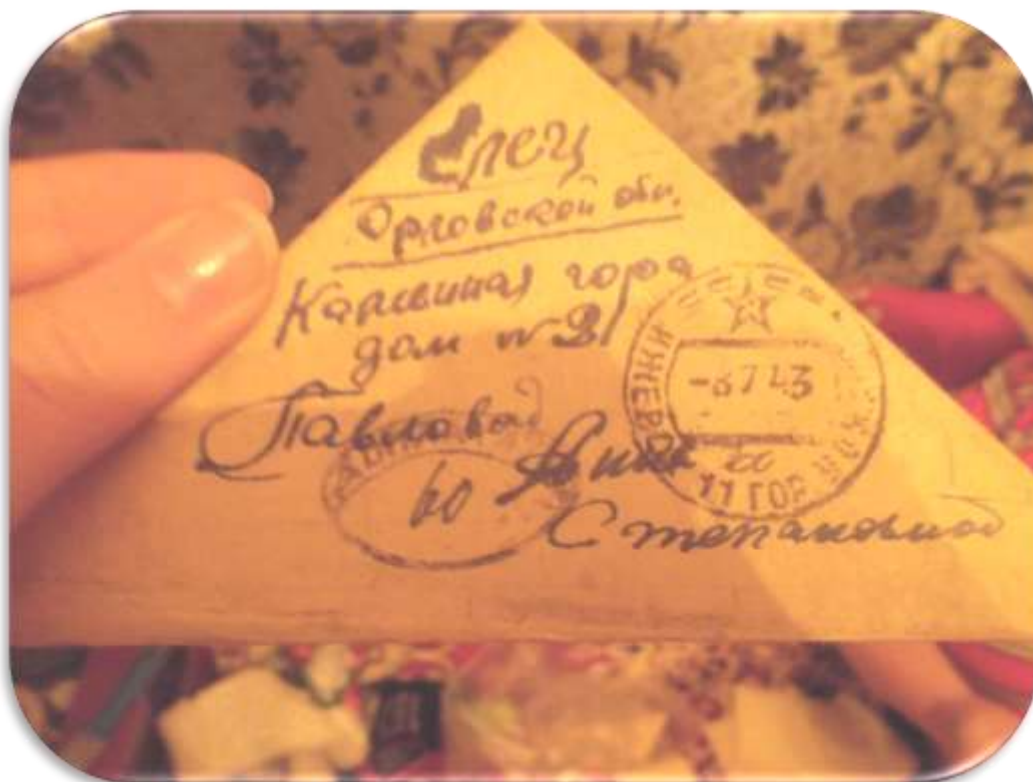 Елец
Орловской обл.
Каменная гора
дом № 21
Павловой
60
Степановной
-3 7 43